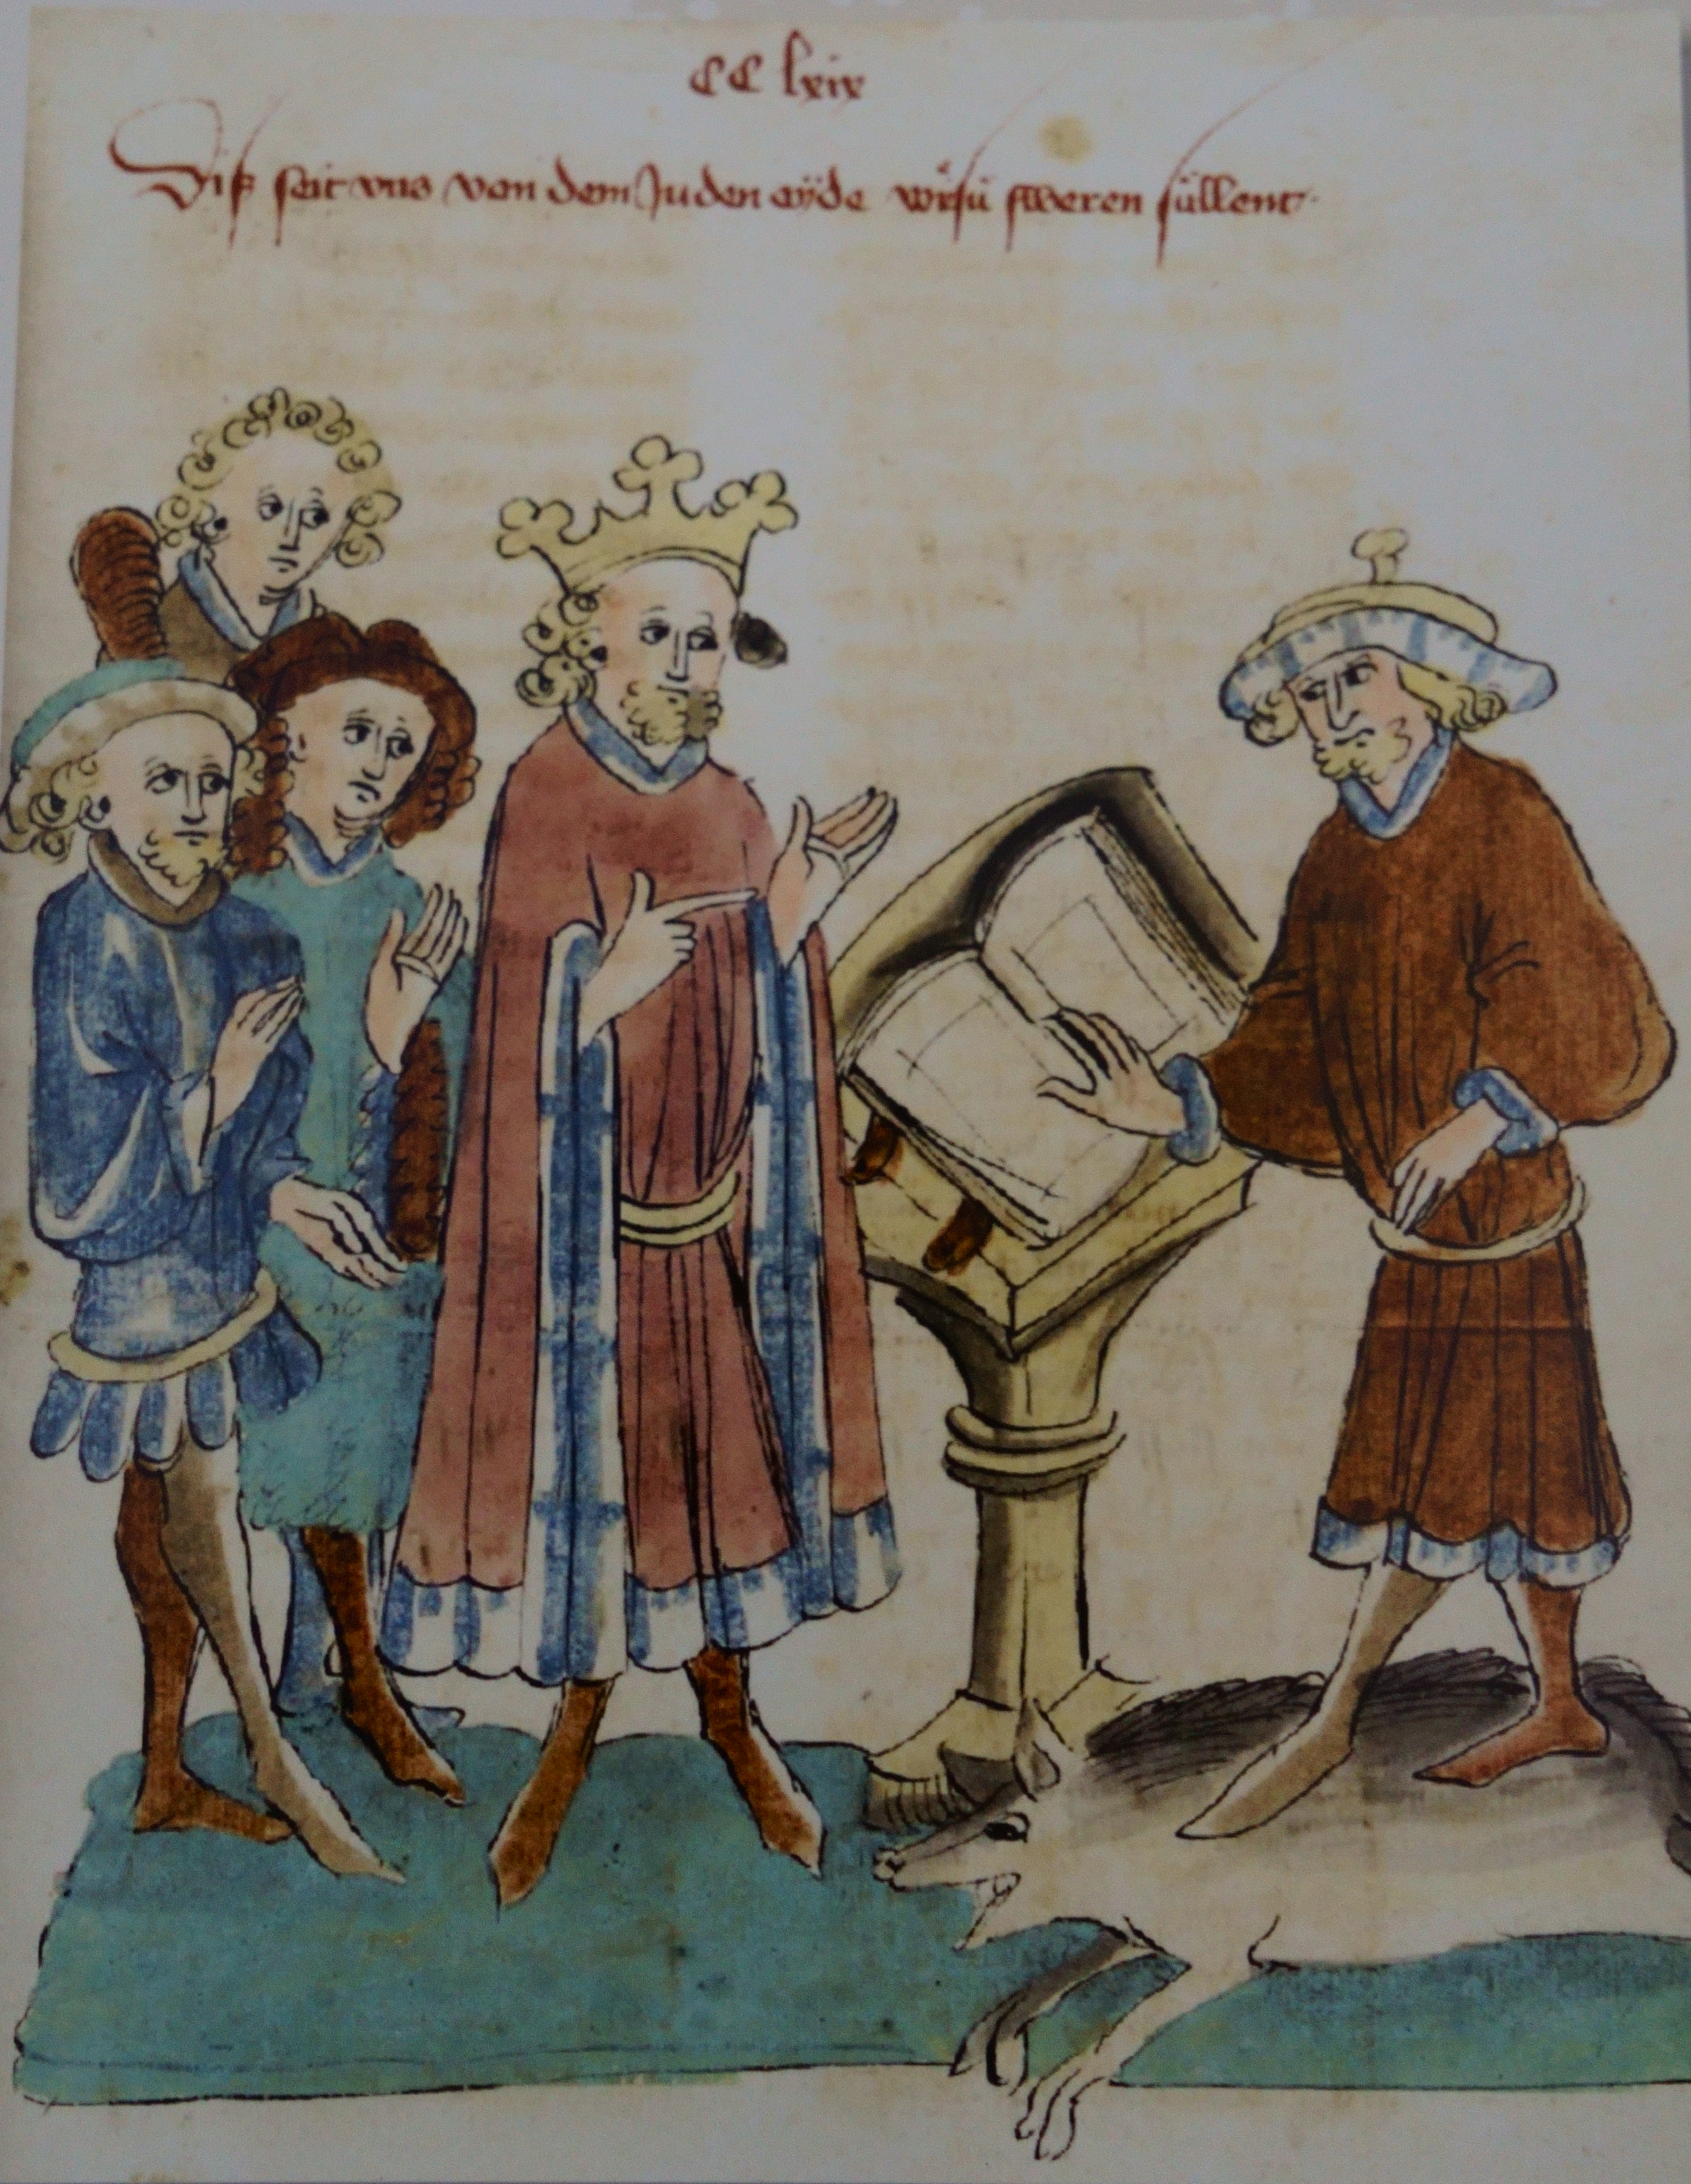 CC lxix
Diß seit vns von dem Juden eyde wie sü sweren süllent